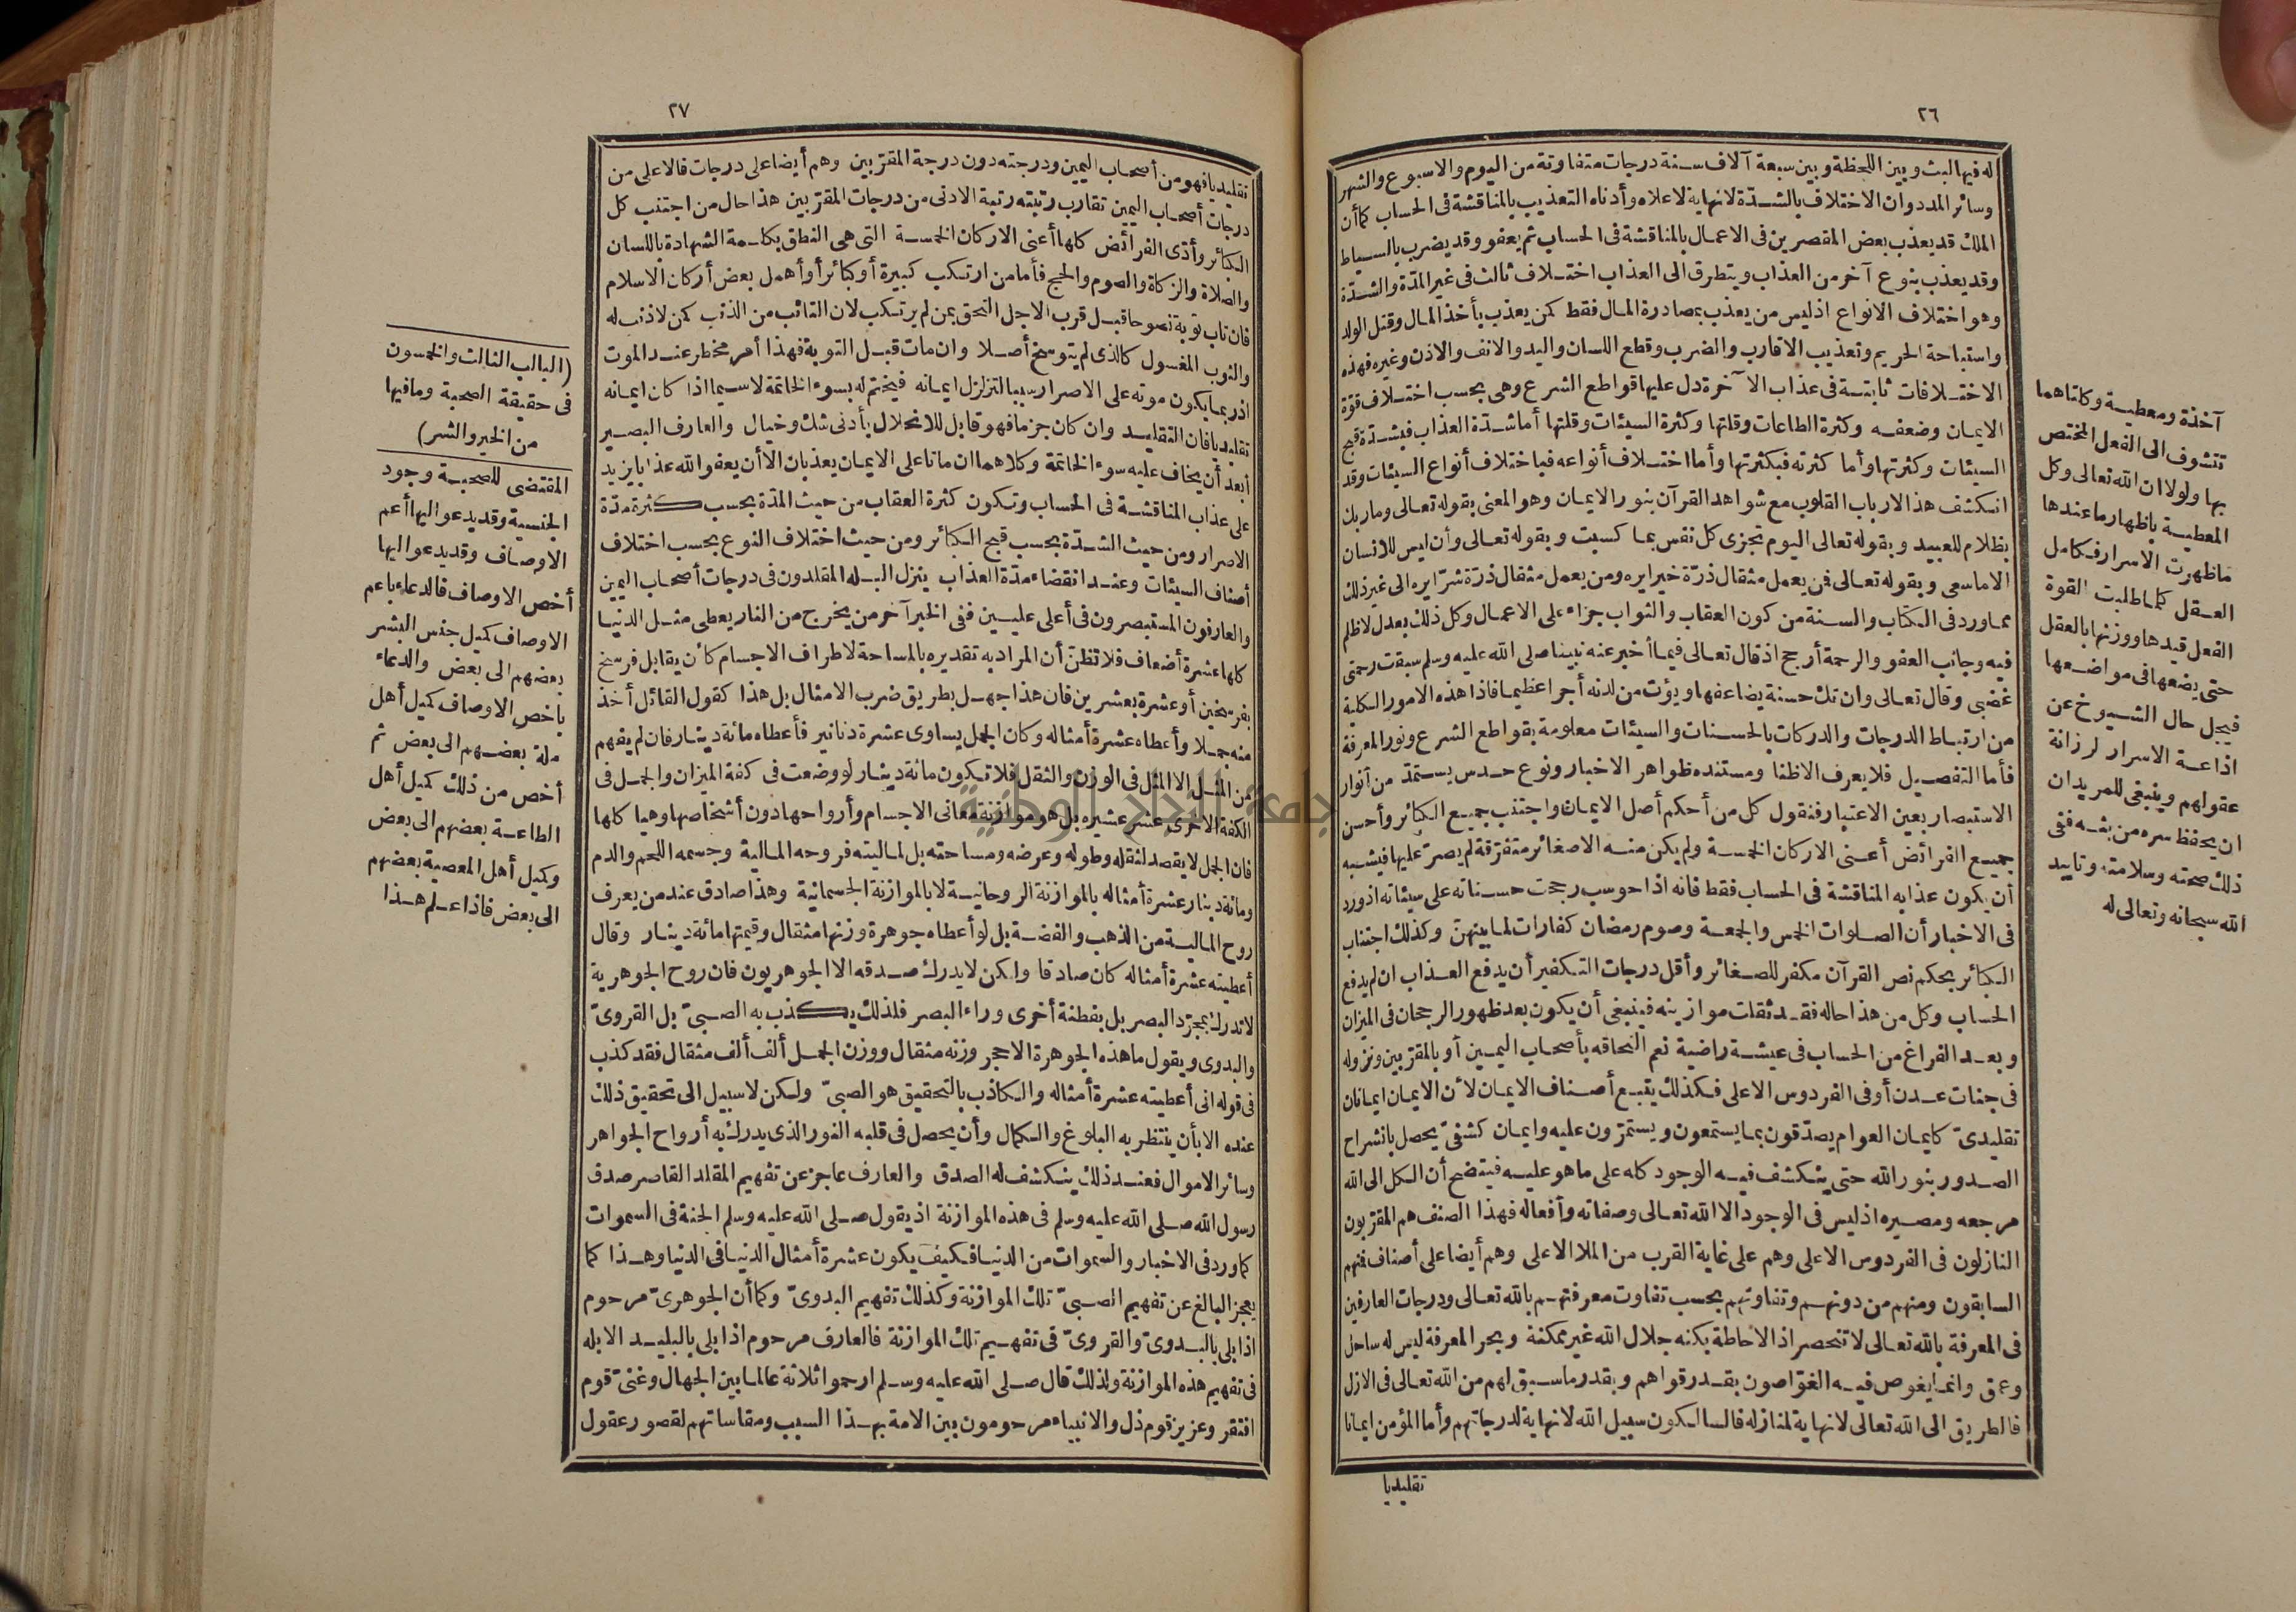 ٢٦
له فيها لبث وبين اللحظة وبين سبعة آلاف سنة درجات متفاوتة من اليوم والاسبوع والشهر
وسائر المدد وان الاختلاف بالشدّة لانهاية لاعلاه وأدناه التعذيب بالمناقشة فى الحساب كما أن
الملك قد يعذب بعض المقصرين فى الاعمال بالمناقشة فى الحساب ثم يعفو وقد يضرب بالسياط
وقد يعذب بنوع آخر من العذاب ويتطرق الى العذاب اختلاف ثالث فى غير المدّة والشدّة
وهو اختلاف الانواع اذ ليس من يعذب بمصادرة المال فقط كمن يعذب بأخذ المال وقتل الولد
واستباحة الحريم وتعذيب الاقارب والضرب وقطع اللسان واليد والانف والاذن وغيره فهذه
الاختلافات ثابتة فى عذاب الآخرة دل عليها قواطع الشرع وهى بحسب اختلاف قوّة
الايمان وضعفه وكثرة الطاعات وقلتها وكثرة السيئات وقلتها أما شدّة العذاب فبشدّة قبح
السيئات وكثرتها وأما كثرته فبكثرتها وأما اختلاف أنواعه فباختلاف أنواع السيئات وقد
انكشف هذا لارباب القلوب مع شواهد القرآن بنور الايمان وهو المعنى بقوله تعالى وماربك
بظلام للعبيد وبقوله تعالى اليوم تجزى كل نفس بما كسبت وبقوله تعالى وأن ليس للانسان
الاماسعى وبقوله تعالى فمن يعمل مثقال ذرّة خيرا يره ومن يعمل مثقال ذرّة شرّا يره الى غير ذلك
مماورد فى الكتاب والسنة من كون العقاب والثواب جزاء على الاعمال وكل ذلك بعدل لاظلم
فيه وجانب العفو والرحمة أرجح اذ قال تعالى فيما أخبر عنه نبينا صلى الله عليه وسلم سبقت رحمتى
غضبى وقال تعالى وان تك حسنة يضاعفها ويؤت من لدنه أجرا عظيما فاذا هذه الامور الكلية
من ارتباط الدرجات والدركات بالحسنات والسيئات معلومة بقواطع الشرع ونور المعرفة
فأما التفصيل فلا يعرف الاظنا ومستنده ظواهر الاخبار ونوع حدس يستمدّ من أنوار
الاستبصار بعين الاعتبار فنقول كل من أحكم أصل الايمان واجتنب جميع الكبائر وأحسن
جميع الفرائض أعنى الاركان الخمسة ولم يكن منه الاصغائر متفرّقة لم يصرّ عليها فيشبه
أن يكون عذابه المناقشة فى الحساب فقط فانه اذا حوسب رجحت حسناته على سيئاته اذ ورد
فى الاخبار أن الصلوات الخمس والجمعة وصوم رمضان كفارات لمابينهنّ وكذلك اجتناب
الكبائر بحكم نص القرآن مكفر للصغائر وأقل درجات التكفير أن يدفع العذاب ان لم يدفع
الحساب وكل من هذا حاله فقد ثقلت موازينه فينبغى أن يكون بعد ظهور الرجحان فى الميزان
وبعد الفراغ من الحساب فى عيشة راضية نعم التحاقه بأصحاب اليمين أو بالمقرّبين ونزوله
فى جنات عدن أوفى الفردوس الاعلى فكذلك يتبع أصناف الايمان لأن الايمان ايمانان
تقليدىّ كايمان العوام يصدّقون بما يستمعون ويستمرّون عليه وايمان كشفىّ يحصل بانشراح
الصدور بنور الله حتى ينكشف فيه الوجود كله على ماهو عليه فيتضح أن الكل الى الله
مرجعه ومصيره اذ ليس فى الوجود الا الله تعالى وصفاته وأفعاله فهذا الصنف هم المقرّبون
النازلون فى الفردوس الاعلى وهم على غاية القرب من الملا الاعلى وهم أيضا على أصناف فمنهم
السابقون ومنهم من دونهم وتفاوتهم بحسب تفاوت معرفتهم بالله تعالى ودرجات العارفين
فى المعرفة بالله تعالى لاتنحصر اذ الاحاطة بكنه جلال الله غير ممكنة وبحر المعرفة ليس له ساحل
وعمق وانما يغوص فيه الغوّاصون بقدر قواهم وبقدر ماسبق لهم من الله تعالى فى الازل
فالطريق الى الله تعالى لانهاية لمنازله فالسالكون سبيل الله لانهاية لدرجاتهم وأما المؤمن ايمانا
تقليديا
آخذة ومعطية وكلتاهما
تتشوف الى الفعل المختص
بها ولولا ان الله تعالى وكل
المعطية باظهار ماعندها
ماظهرت الاسرار فكامل
العقل كلما طلبت القوة
الفعل قيدها ووزنها بالعقل
حتى يضعها فى مواضعها
فيجل حال الشيوخ عن
اذاعة الاسرار لرزانة
عقولهم وينبغى للمريد ان
ان يحفظ سره من بثه ففى
ذلك صحته وسلامته وتاييد
الله سبحانه وتعالى له
٢٧
تقليديا فهو من أصحاب اليمين ودرجته دون درجة المقرّبين وهم أيضا على درجات فالاعلى من
درجات أصحاب اليمين تقارب رتبته رتبة الادنى من درجات المقرّبين هذا حال من اجتنب كل
الكبائر وأدّى الفرائض كلها أعنى الاركان الخمسة التى هى النطق بكلمة الشهادة باللسان
والصلاة والزكاة والصوم والحج فأما من ارتكب كبيرة أو كبائر أو أهمل بعض أركان الاسلام
فان تاب توبة نصوحا قبل قرب الاجل التحق بمن لم يرتكب لان التائب من الذنب كمن لاذنب له
والثوب المغسول كالذى لم يتوسخ أصلا وان مات قبل التوبة فهذا أمر مخطر عند الموت
اذ ربما يكون موته على الاصرار سببا لتزلزل ايمانه فيختم له بسوء الخاتمة لاسيما اذا كان ايمانه
تقليديا فان التقليد وان كان جزما فهو قابل للانحلال بأدنى شك وخيال والعارف البصير
أبعد أن يخاف عليه سوء الخاتمة وكلاهما ان ماتا على الايمان يعذبان الا أن يعفو الله عذابا يزيد
على عذاب المناقشة فى الحساب وتكون كثرة العقاب من حيث المدّة بحسب كثرة مدّة
الاصرار ومن حيث الشدّة بحسب قبح الكبائر ومن حيث اختلاف النوع بحسب اختلاف
أصناف السيئات وعند انقضاء مدّة العذاب ينزل البله المقلدون فى درجات أصحاب اليمين
والعارفون المستبصرون فى أعلى عليين ففى الخبر آخر من يخرج من النار يعطى مثل الدنيا
كلها عشرة أضعاف فلا تظنّ أن المراد به تقديره بالمساحة لاطراف الاجسام كأن يقابل فرسخ
بفرسخين أو عشرة بعشرين فان هذا جهل بطريق ضرب الامثال بل هذا كقول القائل أخذ
منه جملا وأعطاه عشرة أمثاله وكان الجمل يساوى عشرة دنانير فأعطاه مائة دينار فان لم يفهم
من المثل الا المثل فى الوزن والثقل فلا تكون مائة دينار لو وضعت فى كفة الميزان والجمل فى
الكفة الاخرى عشر عشيره بل هو موازنة معانى الاجسام وأرواحها دون أشخاصها وهيا كلها
فان الجمل لا يقصد لثقله وطوله وعرضه ومساحته بل لماليته فروحه المالية وجسمه اللحم والدم
ومائة دينار عشرة أمثاله بالموازنة الروحانية لا بالموازنة الجسمانية وهذا صادق عند من يعرف
روح المالية من الذهب والفضة بل لو أعطاه جوهرة وزنها مثقال وقيمتها مائة دينار وقال
أعطيته عشرة أمثاله كان صادقا ولكن لا يدرك صدقه الا الجوهريون فان روح الجوهرية
لا تدرك بمجرّد البصر بل بفطنة أخرى وراء البصر فلذلك يكذب به الصبىّ بل القروىّ
والبدوى ويقول ماهذه الجوهرة الاحجر وزنه مثقال ووزن الجمل ألف ألف مثقال فقد كذب
فى قوله انى أعطيته عشرة أمثاله والكاذب بالتحقيق هو الصبىّ ولكن لاسبيل الى تحقيق ذلك
عنده الا بأن ينتظر به البلوغ والكمال وأن يحصل فى قلبه النور الذى يدرك به أرواح الجواهر
وسائر الاموال فعند ذلك ينكشف له الصدق والعارف عاجز عن تفهيم المقلد القاصر صدق
رسول الله صلى الله عليه وسلم فى هذه الموازنة اذ يقول صلى الله عليه وسلم الجنة فى السموات
كما ورد فى الاخبار والسموات من الدنيا فكيف يكون عشرة أمثال الدنيا فى الدنيا وهذا كما
يعجز البالغ عن تفهيم الصبىّ تلك الموازنة وكذلك تفهيم البدوىّ وكما أن الجوهرىّ مرحوم
اذا بلى بالبدوىّ والقروىّ فى تفهيم تلك الموازنة فالعارف مرحوم اذا بلى بالبليد الابله
فى تفهيم هذه الموازنة ولذلك قال صلى الله عليه وسلم ارحموا ثلاثة عالما بين الجهال وغنىّ قوم
افتقر وعزيز قوم ذل والانبياء مرحومون بين الامة بهذا السبب ومقاساتهم لقصور عقول
(الباب الثالث والخمسون
فى حقيقة الصحبة ومافيها
من الخير والشر)
المقتضى للصحبة وجود
الجنسية وقد يدعو اليها أعم
الاوصاف وقد يدعو اليها
أخص الاوصاف فالدعاء باعم
الاوصاف كميل جنس البشر
بعضهم الى بعض والدعاء
باخص الاوصاف كميل أهل
ملة بعضهم الى بعض ثم
أخص من ذلك كميل أهل
الطاعة بعضهم الى بعض
وكميل أهل المعصية بعضهم
الى بعض فاذا علم هذا
جامعة النجاح الوطنية